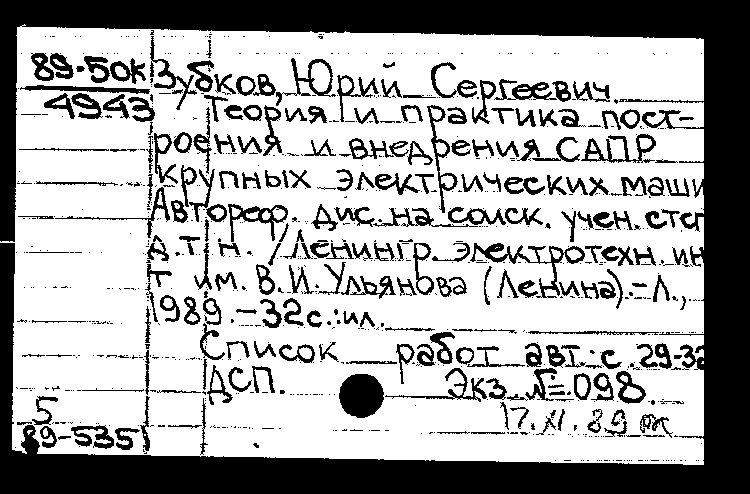 89-50к Зубков, Юрий Сергеевич.
4943 Теория и практика пост-
роения и внедрения САПР
крупных электрических маши
Автореф. дис. на соиск. учен. степ
д.т.н. /Ленингр. электротехн. ин
т им. В.И.Ульянова (Ленина).-Л.,
1989.-32с.:ил.
Список работ авт.: с. 29-32
ДСП. Экз. №098.
5 17.XI.89
89-5351